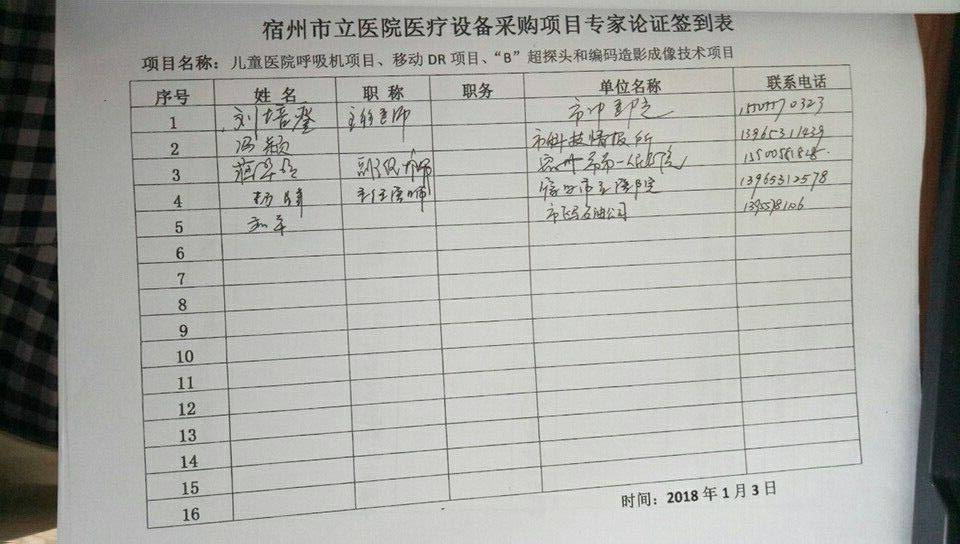 宿州市立医院医疗设备采购项目专家论证签到表
项目名称：儿童医院呼吸机项目、移动 DR 项目、“B”超探头和编码造影成像技术项目
序号 姓 名 职 称 职务 单位名称 联系电话
1 刘培 主任医师
2 冯颖 市科技情报所
3 宿州市第一人民医院
4 杨 主任医师 宿州市立医院 13965312578
5 公司
6
7
8
9
10
11
12
13
14
15
16
时间：2018 年 1 月 3 日